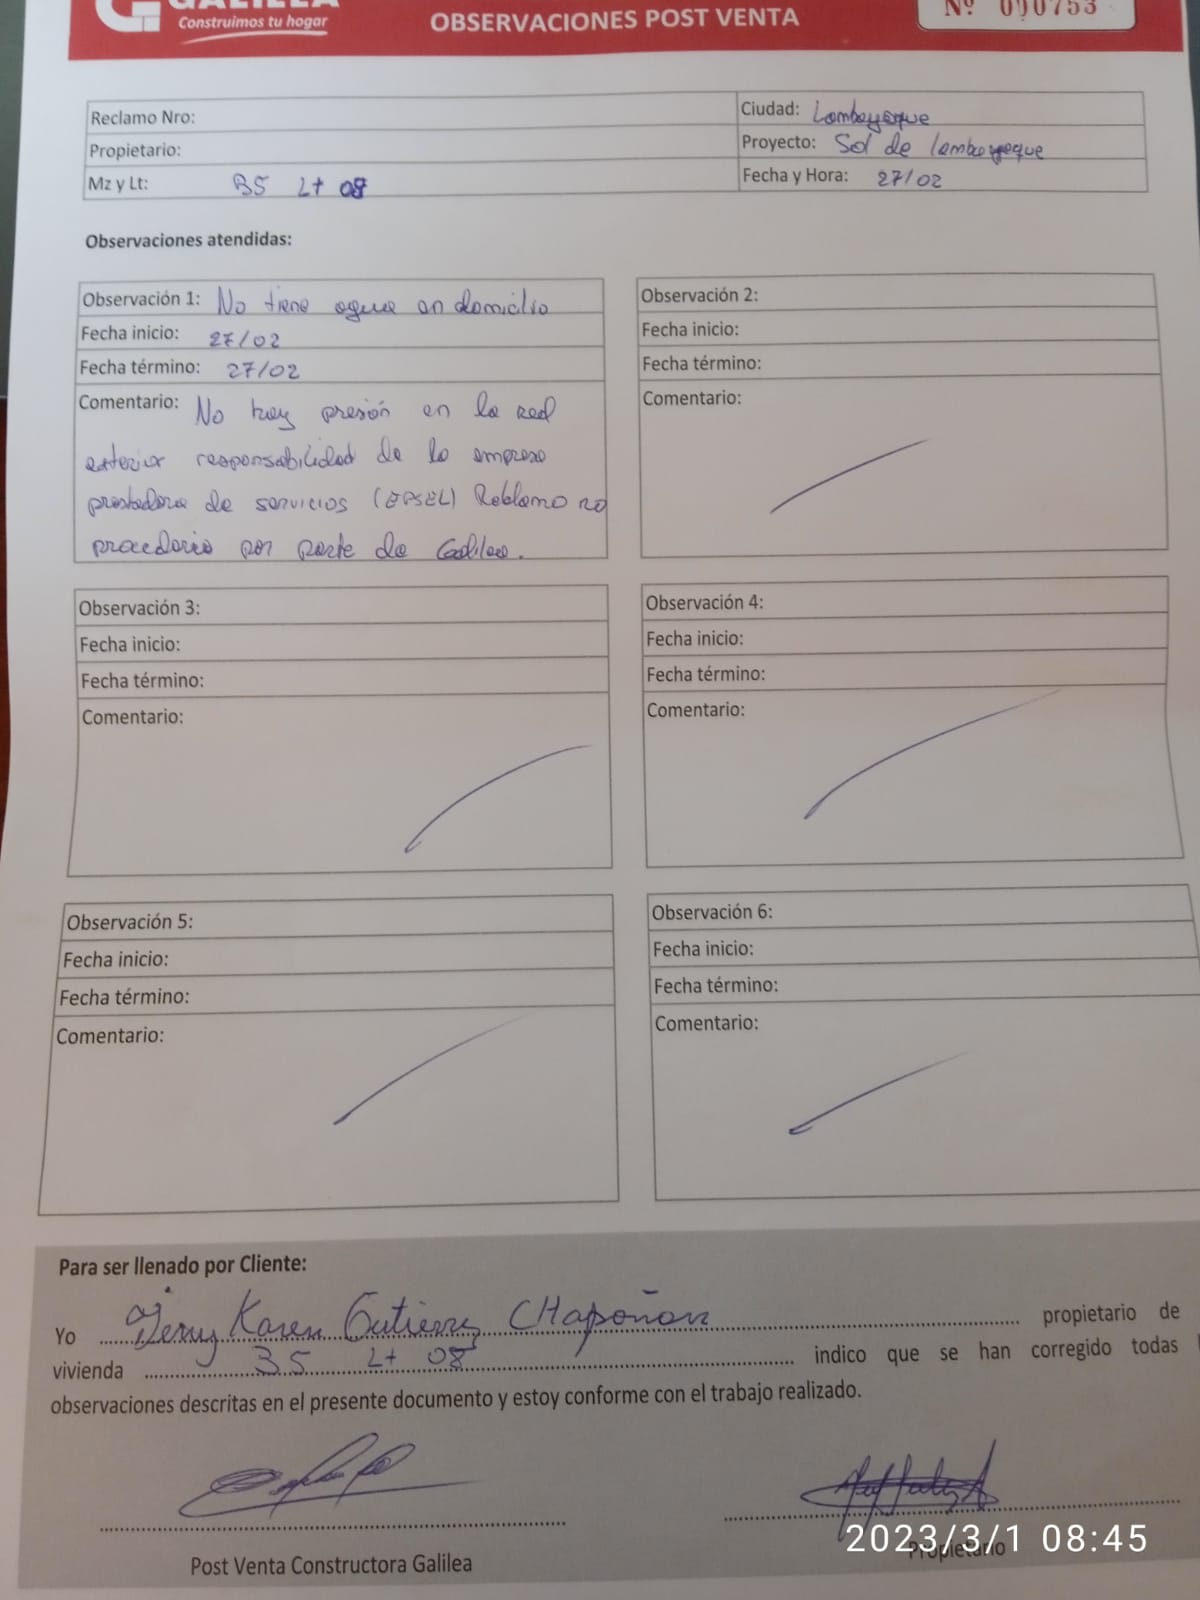 GALILEA
Construimos tu hogar
OBSERVACIONES POST VENTA
Nº 000753
Reclamo Nro:
Ciudad: Lambayeque
Propietario:
Proyecto: Sol de lambayeque
Mz y Lt: B5 Lt 08
Fecha y Hora: 27/02
Observaciones atendidas:
Observación 1: No tiene agua en domicilio
Fecha inicio: 27/02
Fecha término: 27/02
Comentario: No hay presión en la red
exterior responsabilidad de la empresa
prestadora de servicios (EPSEL) Reclamo no
procedario por parte de Galilea.
Observación 2:
Fecha inicio:
Fecha término:
Comentario:
Observación 3:
Fecha inicio:
Fecha término:
Comentario:
Observación 4:
Fecha inicio:
Fecha término:
Comentario:
Observación 5:
Fecha inicio:
Fecha término:
Comentario:
Observación 6:
Fecha inicio:
Fecha término:
Comentario:
Para ser llenado por Cliente:
Yo Jenny Karen Gutierrez CHapoñan propietario de
vivienda B5 Lt 08 indico que se han corregido todas
observaciones descritas en el presente documento y estoy conforme con el trabajo realizado.
Post Venta Constructora Galilea
Propietario
2023/3/1 08:45